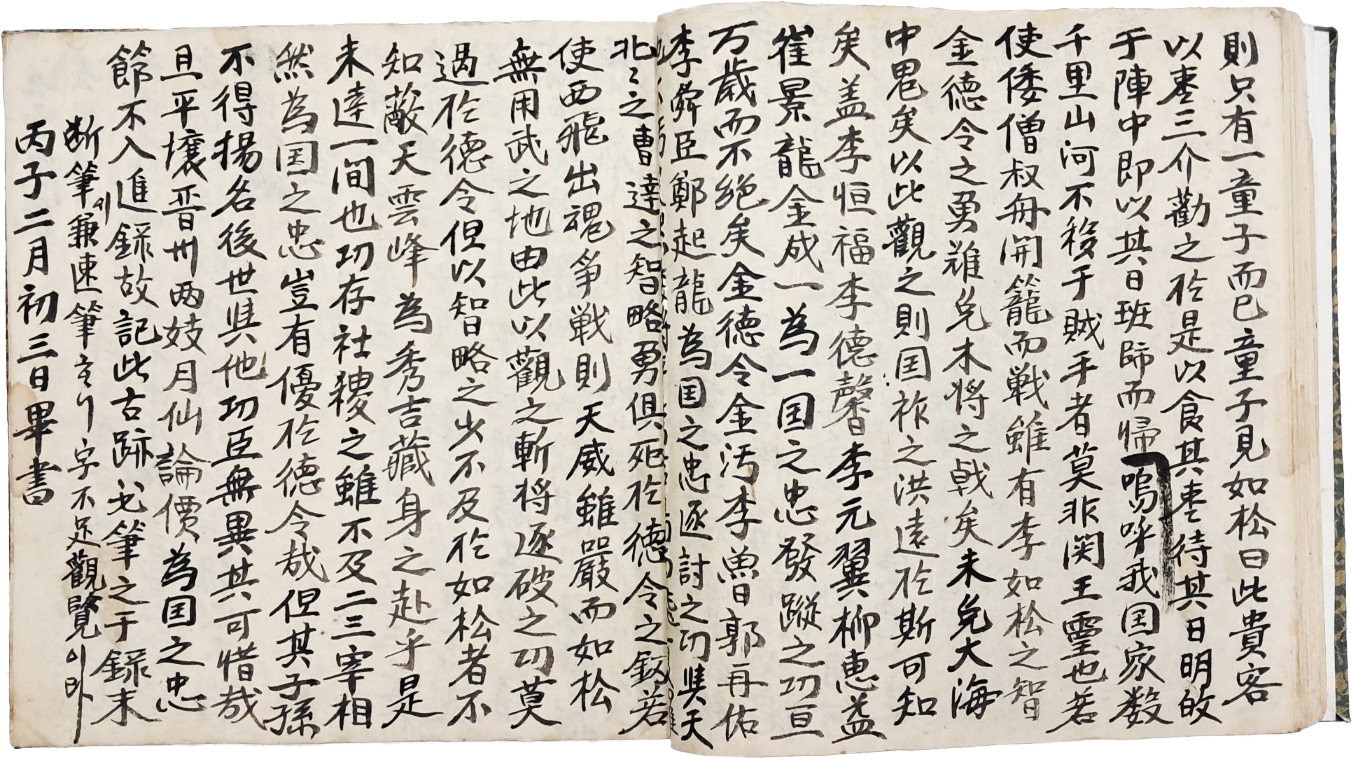 則只有一童子而已童子見如松曰此貴客
以枣三介勸之於是以食其枣待其日明故
于陣中即以其日班師而歸嗚呼我国家数
千里山河不移于賊手者莫非関王霊也若
使倭僧叔舟開籠而戦雖有李如松之智
金徳令之勇难免木将之戟矣未免大海
中鬼矣以此觀之則国祚之洪遠於斯可知
矣盖李恒福李徳馨李元翼柳恵益
崔景龍金成一為一国之忠發蹤之功亘
万歳而不绝矣金徳令金汚李曽日郭再佑
李舜臣鄭起龍為国之忠逐討之功與天
北之曹達之智略勇俱死於徳令之釼若
使西飛出魂爭戦則天威雖嚴而如松
無用武之地由此以觀之斬将逐破之功莫
過於徳令但以智略之少不及於如松者不
知敵天雲峰為秀吉藏身之赴乎是
未達一间也功存社稷之雖不及二三宰相
然為国之忠豈有優於徳令哉但其子孫
不得揚名後世與他功臣無異其可惜哉
且平壤晋州两妓月仙論價為国之忠
節不入進録故記此古跡光筆之于録末
断筆에兼速筆字不足觀覽이라
丙子二月初三日畢書